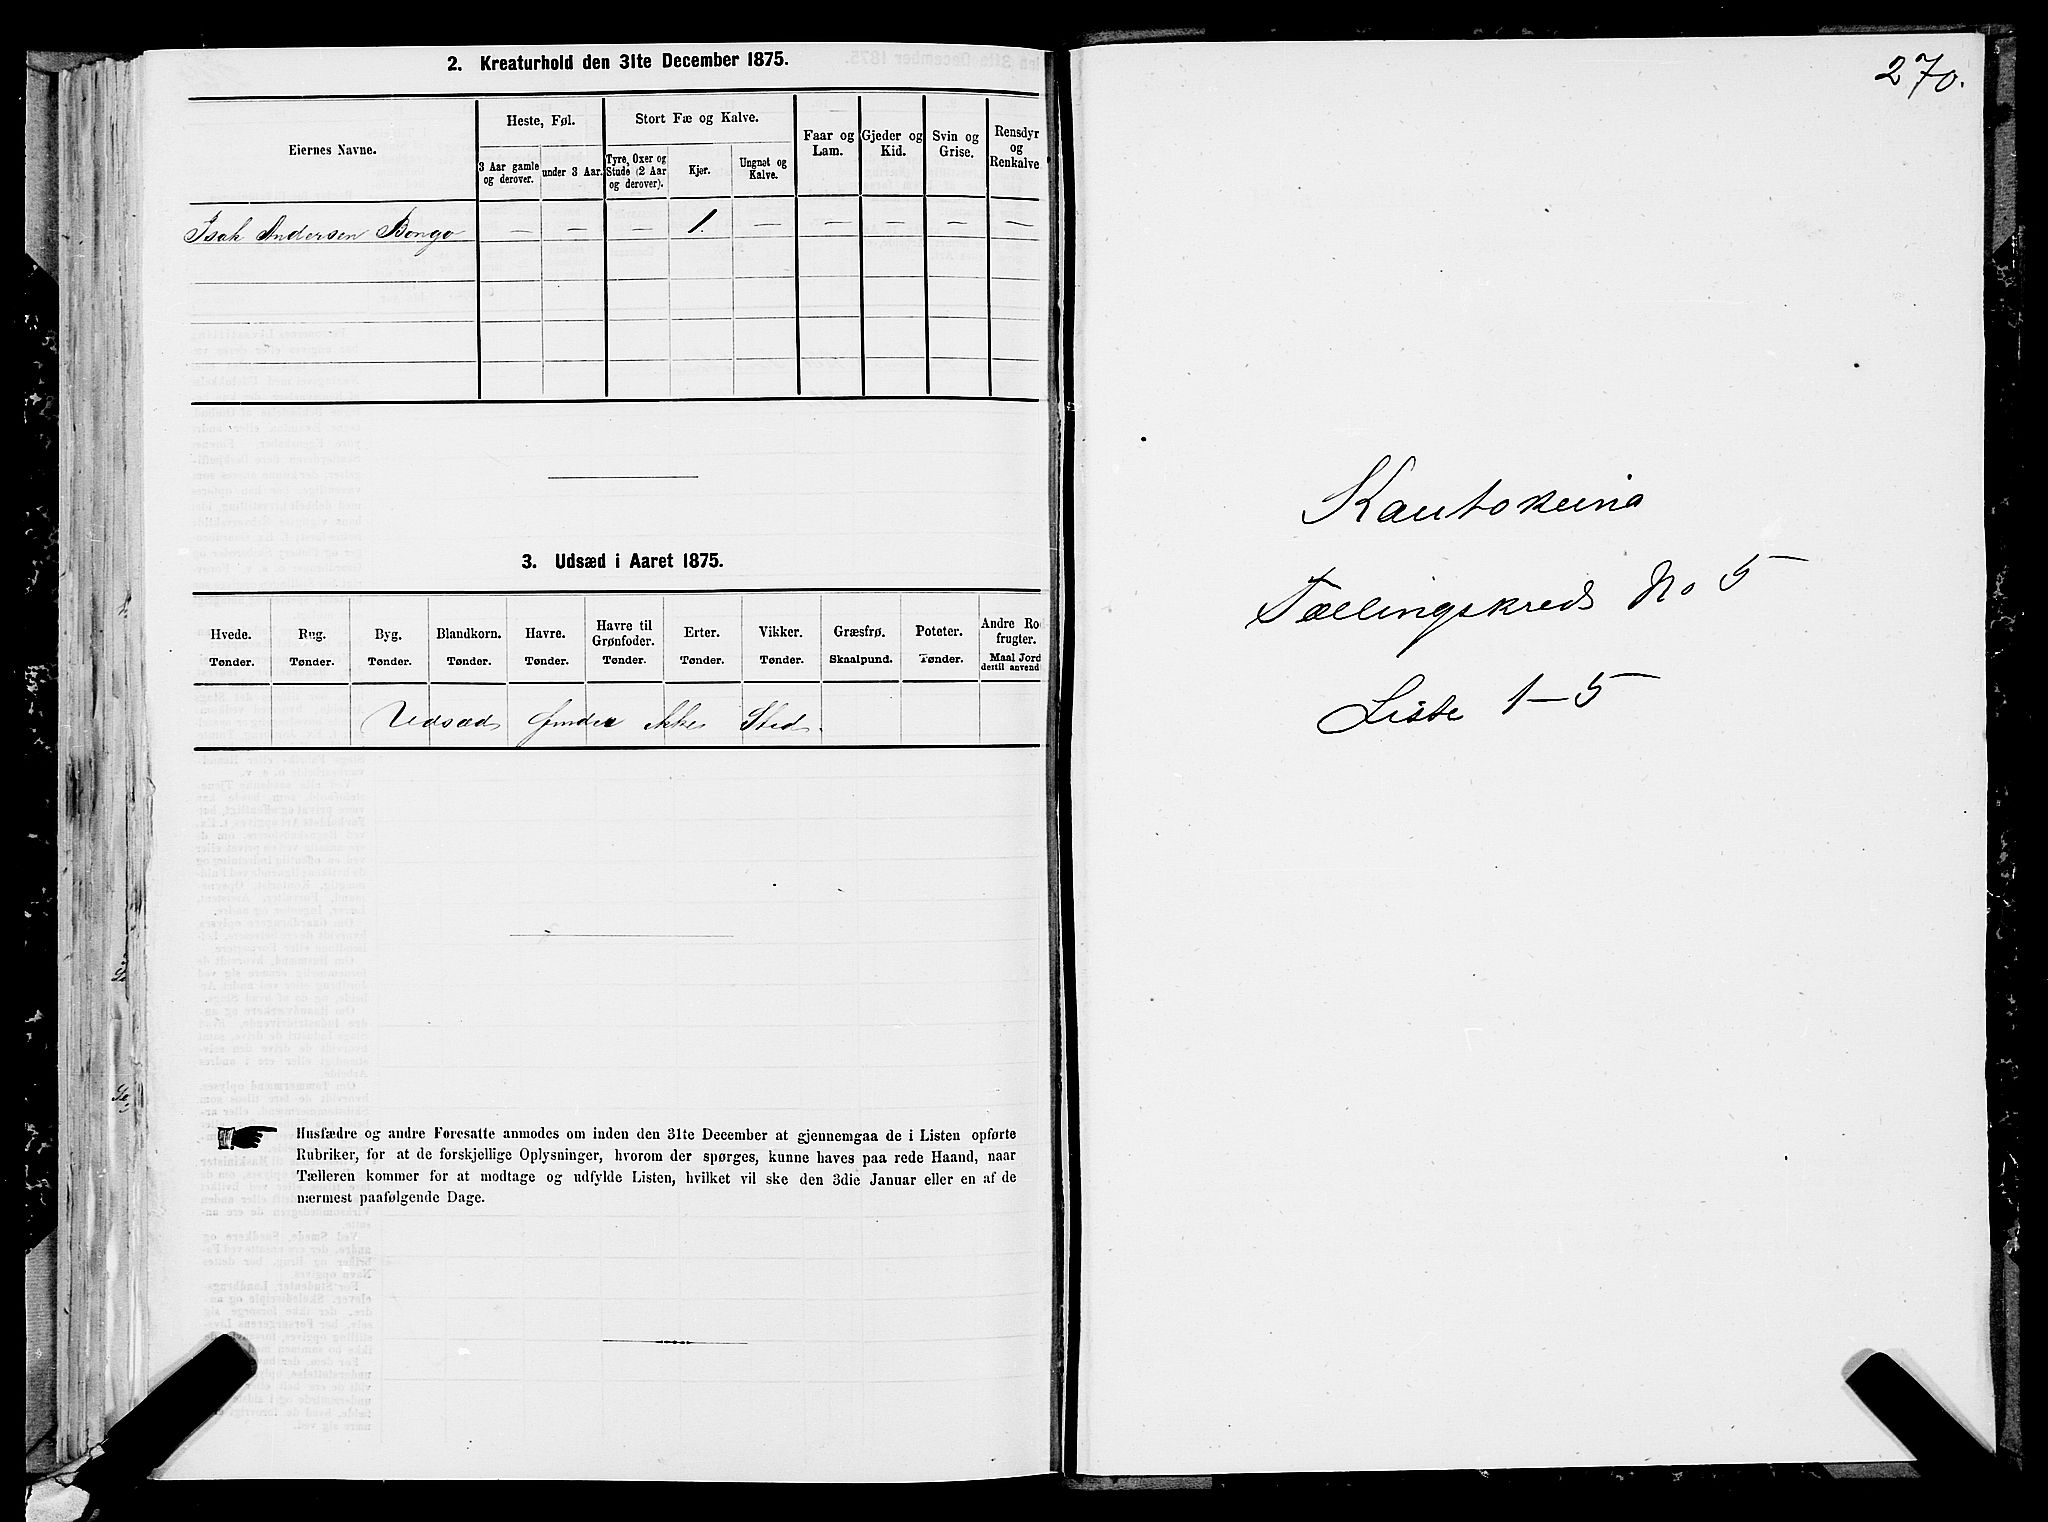 2. Kreaturhold den 31te December 1875.
Eiernes Navne.
Heste, Føl.
Stort Fæ og Kalve.
Faar og Lam.
Gjeder og Kid.
Svin og Grise.
Rensdyr og Renkalve
3 Aar gamle og derover.
under 3 Aar.
Tyre, Oxer og Stude (2 Aar og derover).
Kjør.
Ungnøt og Kalve.
Isak Andersen Bongo — — — 1. — — — — —
3. Udsæd i Aaret 1875.
Hvede. Tønder.
Rug. Tønder.
Byg. Tønder.
Blandkorn. Tønder.
Havre. Tønder.
Havre til Grønfoder. Tønder.
Erter. Tønder.
Vikker. Tønder.
Græsfrø. Skaalpund.
Poteter. Tønder.
Andre Ro frugter. Maal Jord dertil anvend
Udsæd finder ikke Sted.
Husfædre og andre Foresatte anmodes om inden den 31te December at gjennemgaa de i Listen opførte
Rubriker, for at de forskjellige Oplysninger, hvorom der spørges, kunne haves paa rede Haand, naar
Tælleren kommer for at modtage og udfylde Listen, hvilket vil ske den 3die Januar eller en af de
nærmest paafølgende Dage.
270.
Kautokeino
Tællingskreds No 5
Liste 1-5